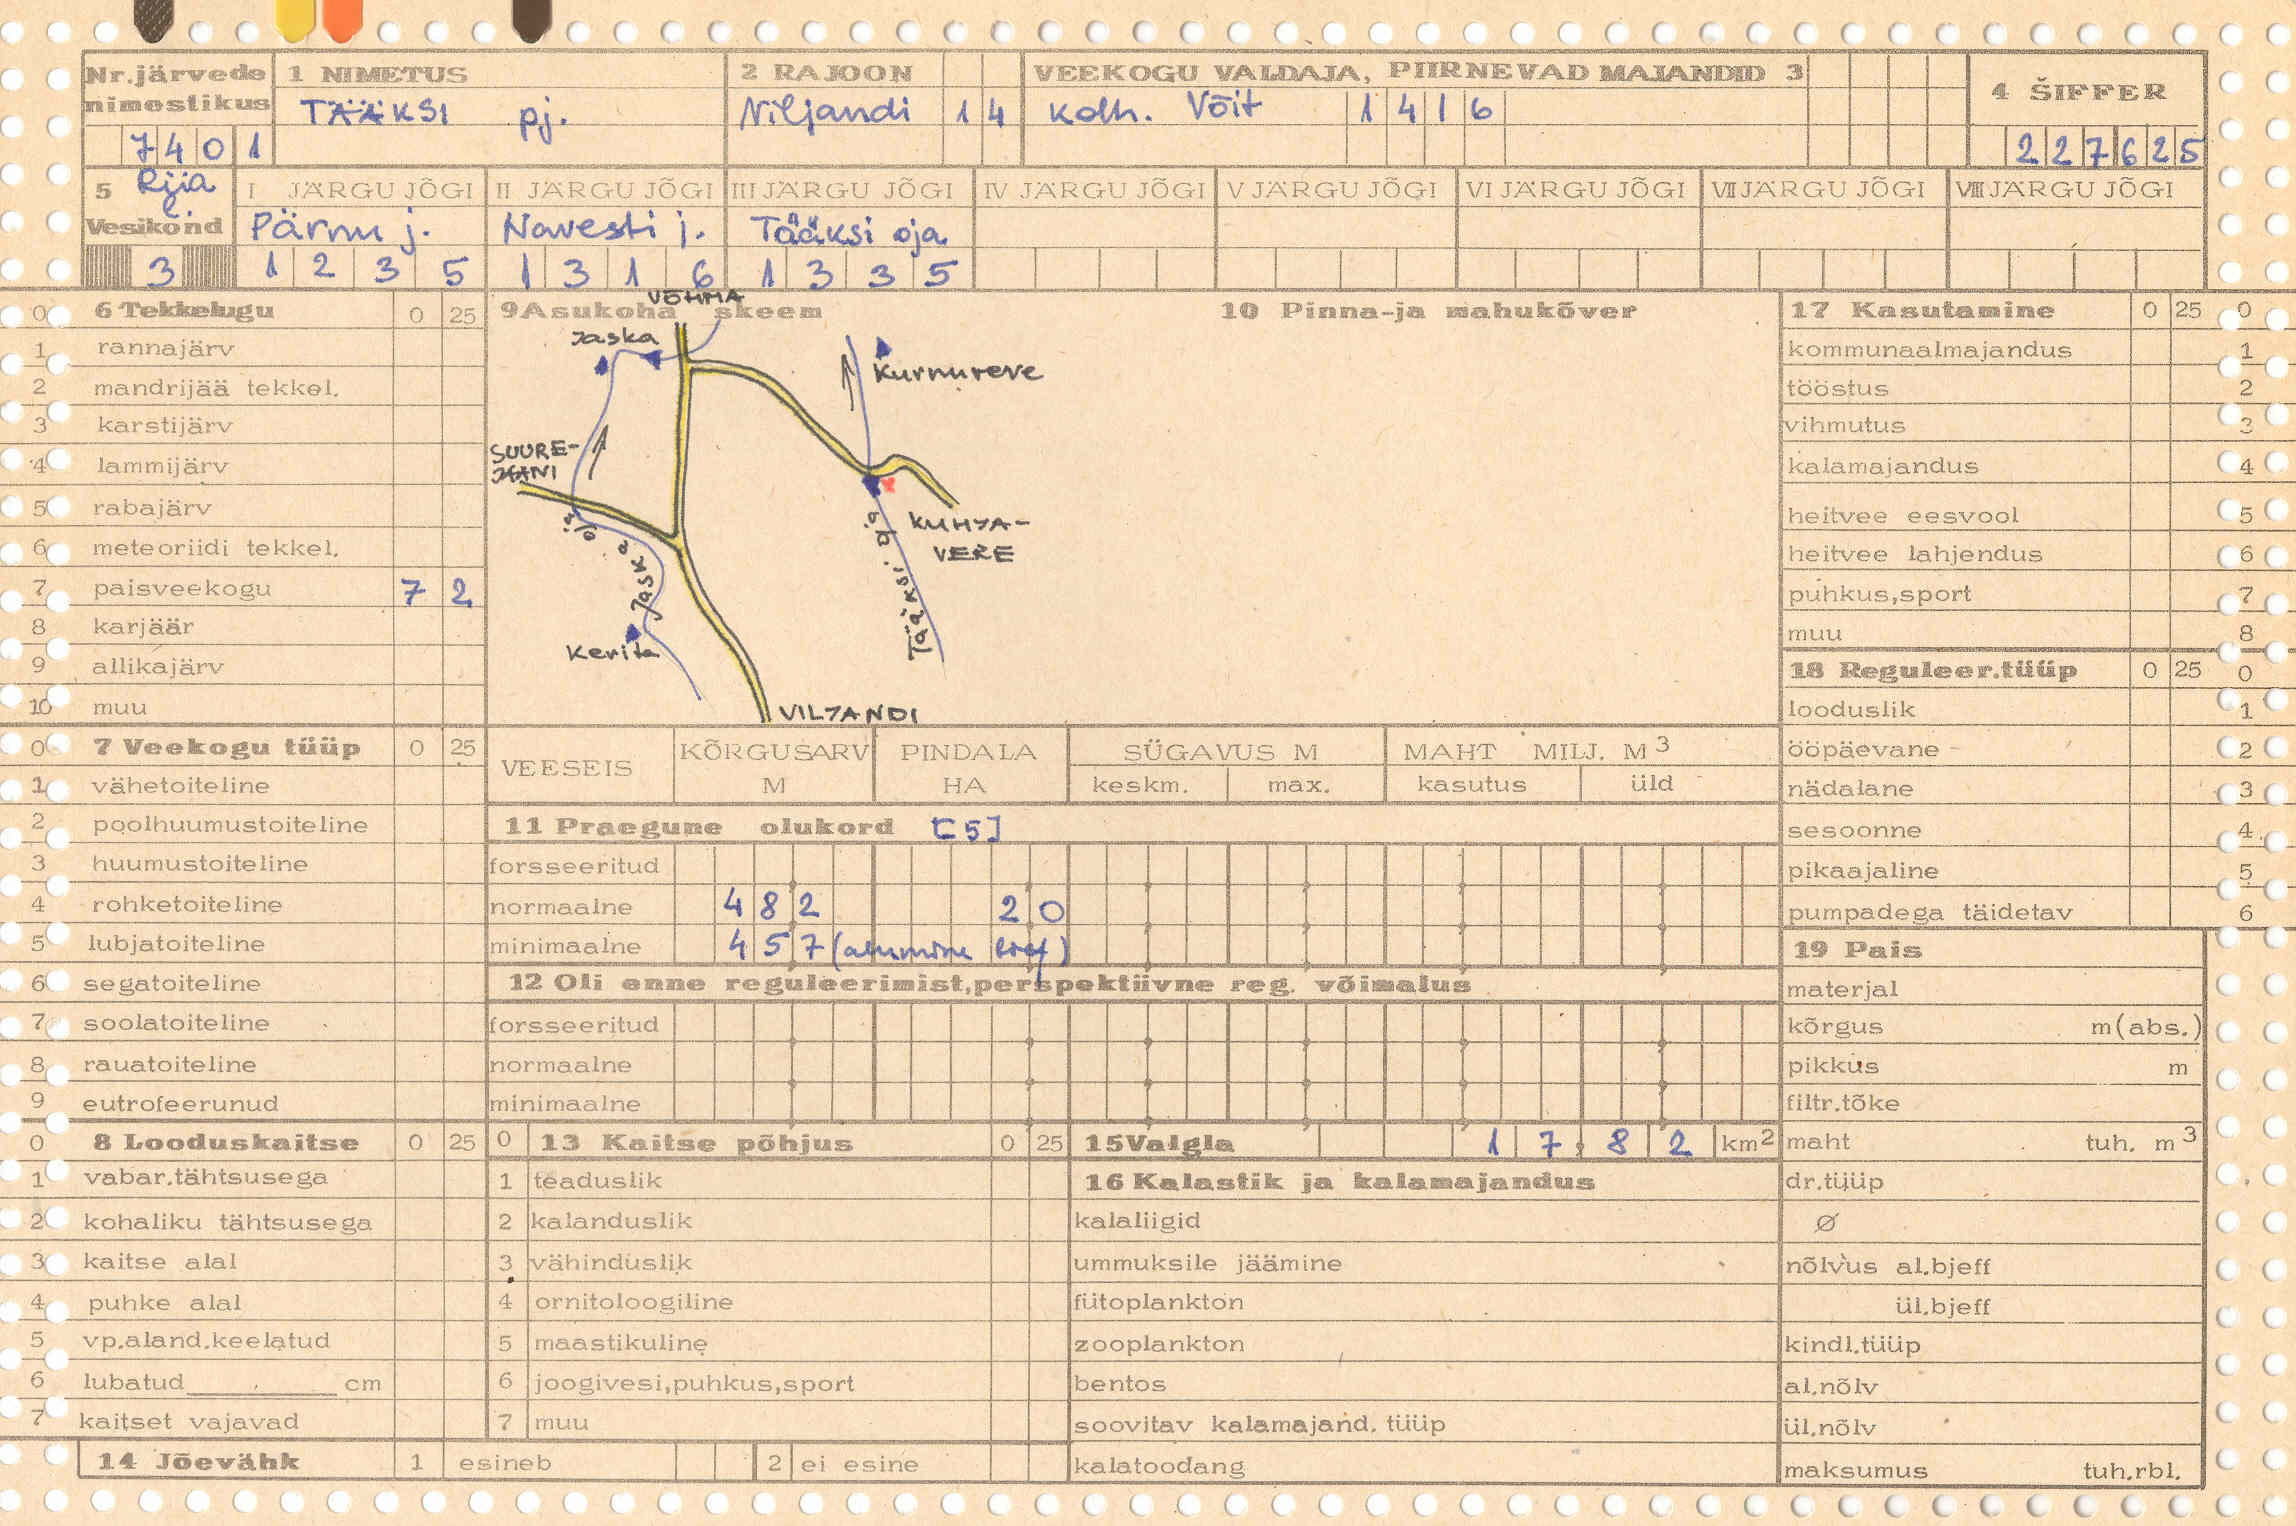 Nr.järvede nimestikus
7401
1 NIMETUS
TÄÄKSI pj.
2 RAJOON
Viljandi 14
VEEKOGU VALDAJA, PIIRNEVAD MAJANDID 3
Kolh. Võit 1416
4 ŠIFFER
227625
5 Vesikond
3
I JÄRGU JÕGI
Pärnu j.
1235
II JÄRGU JÕGI
Navesti j.
1316
III JÄRGU JÕGI
Tääksi oja
1335
IV JÄRGU JÕGI
V JÄRGU JÕGI
VI JÄRGU JÕGI
VII JÄRGU JÕGI
VIII JÄRGU JÕGI
0 6 Tekkelugu 0 25
1 rannajärv
2 mandrijää tekkel.
3 karstijärv
4 lammijärv
5 rabajärv
6 meteoriidi tekkel.
7 paisveekogu 7 2
8 karjäär
9 allikajärv
10 muu
0 7 Veekogu tüüp 0 25
1 vähetoiteline
2 poolhuumustoiteline
3 huumustoiteline
4 rohketoiteline
5 lubjatoiteline
6 segatoiteline
7 soolatoiteline
8 rauatoiteline
9 eutrofeerunud
0 8 Looduskaitse 0 25
1 vabar.tähtsusega
2 kohaliku tähtsusega
3 kaitse alal
4 puhke alal
5 vp.aland.keelatud
6 lubatud cm
7 kaitset vajavad
14 Jõevähk 1 esineb 2 ei esine
9 Asukoha skeem
VÕHMA
Jaska
Kurnuvere
SUURE-
JAANI
Jaska oja
KUHJA-
VERE
Tääksi oja
Kerita
VILJANDI
10 Pinna-ja mahukõver
VEESEIS
KÕRGUSARV M
PINDALA HA
SÜGAVUS M
keskm. max.
MAHT MILJ. M3
kasutus üld
11 Praegune olukord [5]
forsseeritud
normaalne 482 20
minimaalne 457 (alumine bief)
12 Oli enne reguleerimist,perspektiivne reg. võimalus
forsseeritud
normaalne
minimaalne
0 13 Kaitse põhjus 0 25
1 teaduslik
2 kalanduslik
3 vähinduslik
4 ornitoloogiline
5 maastikuline
6 joogivesi,puhkus,sport
7 muu
15 Valgla 17,82 km2
16 Kalastik ja kalamajandus
kalaliigid
ummuksile jäämine
fütoplankton
zooplankton
bentos
soovitav kalamajand. tüüp
kalatoodang
17 Kasutamine 0 25 0
kommunaalmajandus 1
tööstus 2
vihmutus 3
kalamajandus 4
heitvee eesvool 5
heitvee lahjendus 6
puhkus,sport 7
muu 8
18 Reguleer.tüüp 0 25 0
looduslik 1
ööpäevane 2
nädalane 3
sesoonne 4
pikaajaline 5
pumpadega täidetav 6
19 Pais
materjal
kõrgus m(abs.)
pikkus m
filtr.tõke
maht tuh. m3
dr.tüüp
Ø
nõlvus al.bjeff
ül.bjeff
kindl.tüüp
al.nõlv
ül.nõlv
maksumus tuh.rbl.